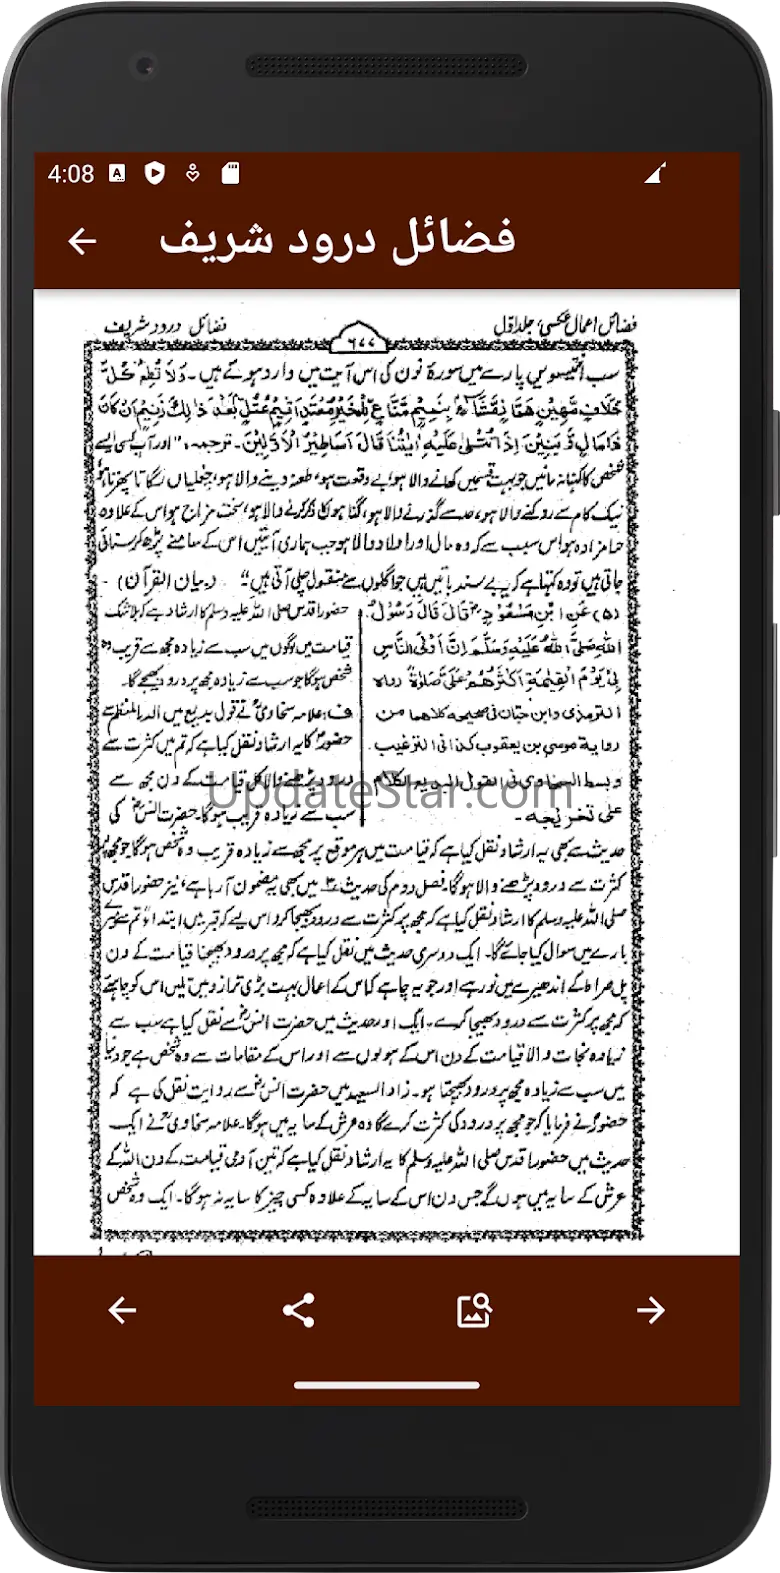 4:08
فضائل درود شریف
فضائل اعمال عکسی، جلد اول
٦٧٧
فضائل درود شریف
سب انتیسویں پارے میں سورۂ نون کی اس آیت میں وارد ہوئے ہیں۔ وَلَا تُطِعْ كُلَّ
حَلَّافٍ مَّهِيْنٍ هَمَّازٍ مَّشَّآءٍ بِنَمِيْمٍ مَّنَّاعٍ لِّلْخَيْرِ مُعْتَدٍ اَثِيْمٍ عُتُلٍّ بَعْدَ ذٰلِكَ زَنِيْمٍ اَنْ كَانَ
ذَا مَالٍ وَّبَنِيْنَ اِذَا تُتْلٰى عَلَيْهِ اٰيٰتُنَا قَالَ اَسَاطِيْرُ الْاَوَّلِيْنَ۔ ترجمہ، "اور آپ کسی ایسے
شخص کا کہنا نہ مانیں جو بہت قسمیں کھانے والا ہو، بے وقعت ہو، طعنہ دینے والا ہو، چغلیاں لگاتا پھرتا ہو،
نیک کام سے روکنے والا ہو، حد سے گذرنے والا ہو، گناہوں کا کرنے والا ہو، سخت مزاج ہو اس کے علاوہ
حرامزادہ ہو اس سبب سے کہ وہ مال اور اولاد والا ہو جب ہماری آیتیں اس کے سامنے پڑھ کر سنائی
جاتی ہیں تو وہ کہتا ہے کہ یہ بے سند باتیں ہیں جو اگلوں سے منقول چلی آتی ہیں" (بیان القرآن) -
(۵) عَنِ ابْنِ مَسْعُوْدٍ قَالَ قَالَ رَسُوْلُ
اللهِ صَلَّى اللهُ عَلَيْهِ وَسَلَّمَ اِنَّ اَوْلَى النَّاسِ
بِيْ يَوْمَ الْقِيٰمَةِ اَكْثَرُهُمْ عَلَيَّ صَلٰوةً رواه
الترمذى وابن حبان فى صحيحه كلاهما من
رواية موسى بن يعقوب كذا فى الترغيب
وبسط السخاوى فى القول البديع الكلام
على تخريجه۔
حضور اقدس صلی اللہ علیہ وسلم کا ارشاد ہے کہ بلاشک
قیامت میں لوگوں میں سب سے زیادہ مجھ سے قریب وہ
شخص ہوگا جو سب سے زیادہ مجھ پر درود بھیجے گا۔
ف: علامہ سخاوی نے قول بدیع میں الدر المنظم سے
حضور کا یہ ارشاد نقل کیا ہے کہ تم میں کثرت سے
درود پڑھنے والا کل قیامت کے دن مجھ سے
سب سے زیادہ قریب ہوگا۔ حضرت انس کی
UpdateStar.com
حدیث سے بھی یہ ارشاد نقل کیا ہے کہ قیامت میں ہر موقع پر مجھ سے زیادہ قریب وہ شخص ہوگا جو مجھ پر
کثرت سے درود پڑھنے والا ہوگا۔ فصل دوم کی حدیث میں بھی یہ مضمون آ رہا ہے، نیز حضور اقدس
صلی اللہ علیہ وسلم کا ارشاد نقل کیا ہے کہ مجھ پر کثرت سے درود بھیجا کرو اس لیے کہ قبر میں ابتداءً تم سے میرے
بارے میں سوال کیا جائے گا۔ ایک دوسری حدیث میں نقل کیا ہے کہ مجھ پر درود بھیجنا قیامت کے دن
پل صراط کے اندھیرے میں نور ہے اور جو یہ چاہے کہ اس کے اعمال بہت بڑی ترازو میں تلیں اس کو چاہیے
کہ مجھ پر کثرت سے درود بھیجا کرے۔ ایک اور حدیث میں حضرت انس سے نقل کیا ہے سب سے
زیادہ نجات والا قیامت کے دن اس کے ہولوں سے اور اس کے مقامات سے وہ شخص ہے جو دنیا
میں سب سے زیادہ مجھ پر درود بھیجتا ہو۔ زاد السعید میں حضرت انس سے روایت نقل کی ہے کہ
حضور نے فرمایا کہ جو مجھ پر درود کی کثرت کرے گا وہ عرش کے سایہ میں ہوگا۔ علامہ سخاوی نے ایک
حدیث میں حضور اقدس صلی اللہ علیہ وسلم کا یہ ارشاد نقل کیا ہے کہ تین آدمی قیامت کے دن اللہ کے
عرش کے سایہ میں ہوں گے جس دن اس کے سایہ کے علاوہ کسی چیز کا سایہ نہ ہوگا۔ ایک وہ شخص